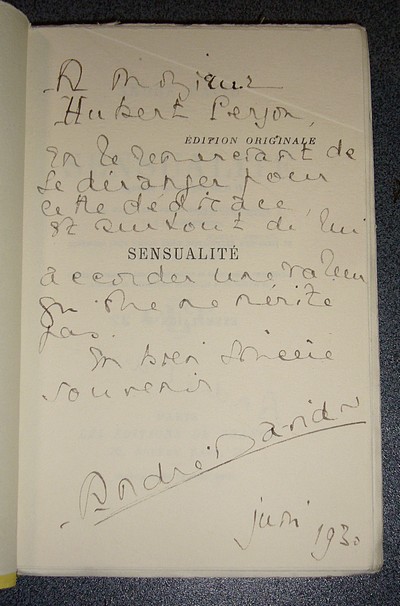 A Monsieur
Hubert
ÉDITION ORIGINALE
en le remerciant de
se déranger pour
cette dédicace
et surtout de lui
SENSUALITÉ
accorder une valeur
qu'elle ne mérite
pas.
En bien sincère
souvenir
André David
juin 1930